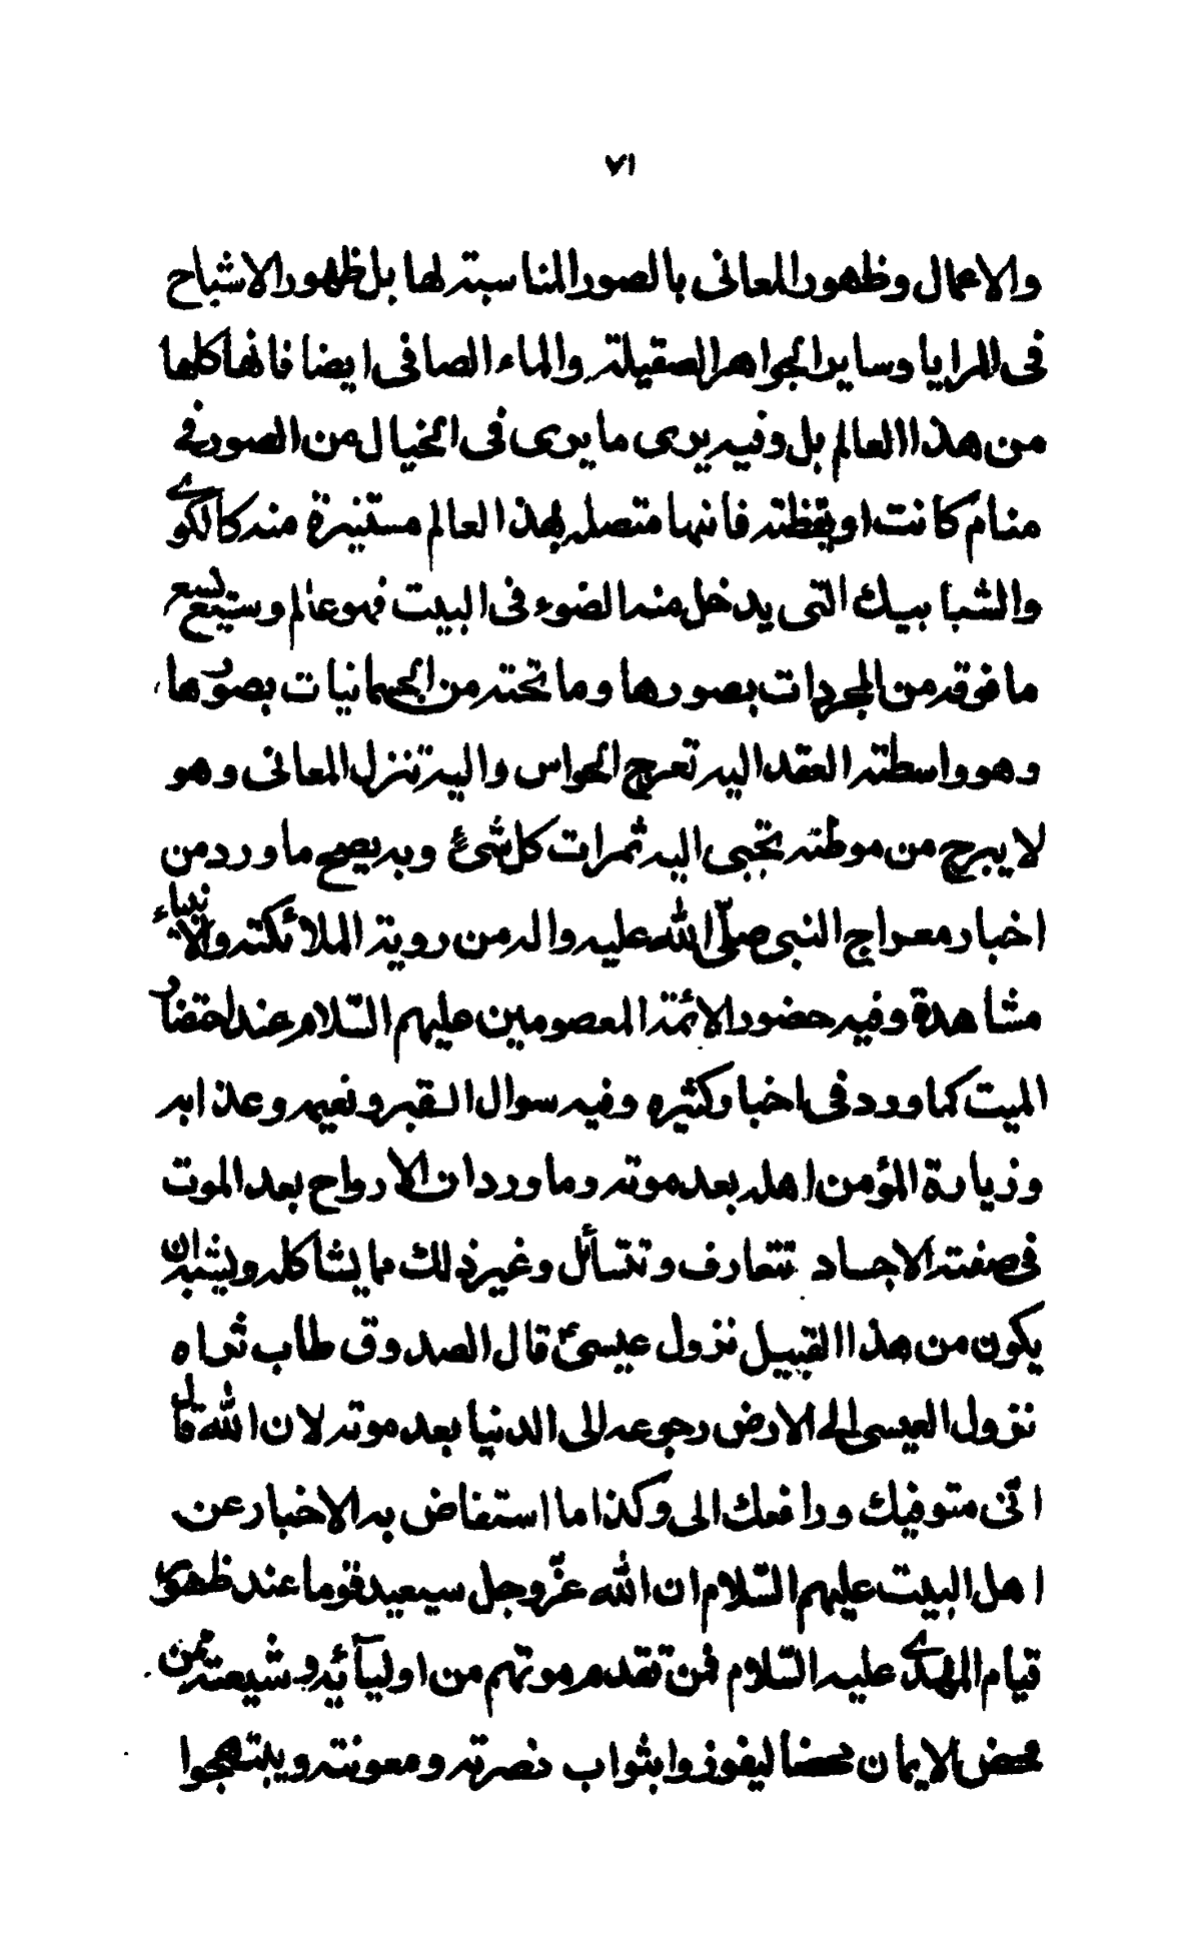 ٧١
والاعمال وظهور المعانى بالصور المناسبة لها بل ظهور الاشباح
فى المرايا وساير الجواهر الصقيلة والماء الصافى ايضا فانها كلها
من هذا العالم بل وفيه يرى ما يرى فى الخيال من الصور فے
منام كانت او يقظته فانها متصله بهذا العالم مستنيرة منه كالكوے
والشبابيك التى يدخل منه الضوء فى البيت فهو عالم وسيع يسع
ما فوقه من المجردات بصورها وما تحته من الجسمانيات بصورها
وهو واسطة العقد اليه تعرج الحواس واليه تنزل المعانى وهو
لا يبرح من موطنه تجبى اليه ثمرات كل شئ وبه يصح ما ورد من
اخبار معراج النبى صلّى الله عليه واله من روية الملائكته والانبياء
مشاهدة وفيه حضور الائمة المعصومين عليهم السّلام عند احتضار
الميت كما ورد فى اخبار كثيره وفيه سوال القبر ونعيمه وعذابه
وزيارة المؤمن اهله بعد موته وما ورد ان الارواح بعد الموت
فى صفة الاجساد تتعارف وتتسأل وغير ذلك مما يشاكله ويشبه ان
يكون من هذا القبيل نزول عيسىٰ قال الصدوق طاب ثراه
نزول العيسى الى الارض رجوعه الى الدنيا بعد موته لان الله قال
انّى متوفيك ورافعك الى وكذا ما استفاض به الاخبار عن
اهل البيت عليهم السّلام ان الله عزّ وجل سيعيد قوما عند ظهور
قيام المهدے عليه السّلام فمن تقدم موتهم من اوليآئه وشيعته ممن
محض الايمان محضا ليفوزوا بثواب نصرته ومعونته ويبتهجوا